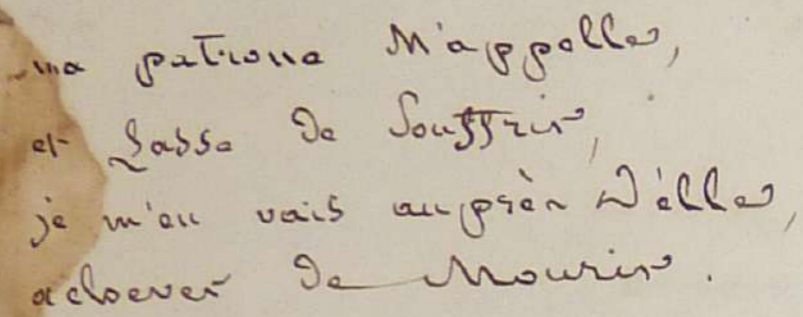 ma patrone M'appelle,
et Lasse de Souffrir,
je m'en vais auprèr D'èlle,
achever de Mourir.